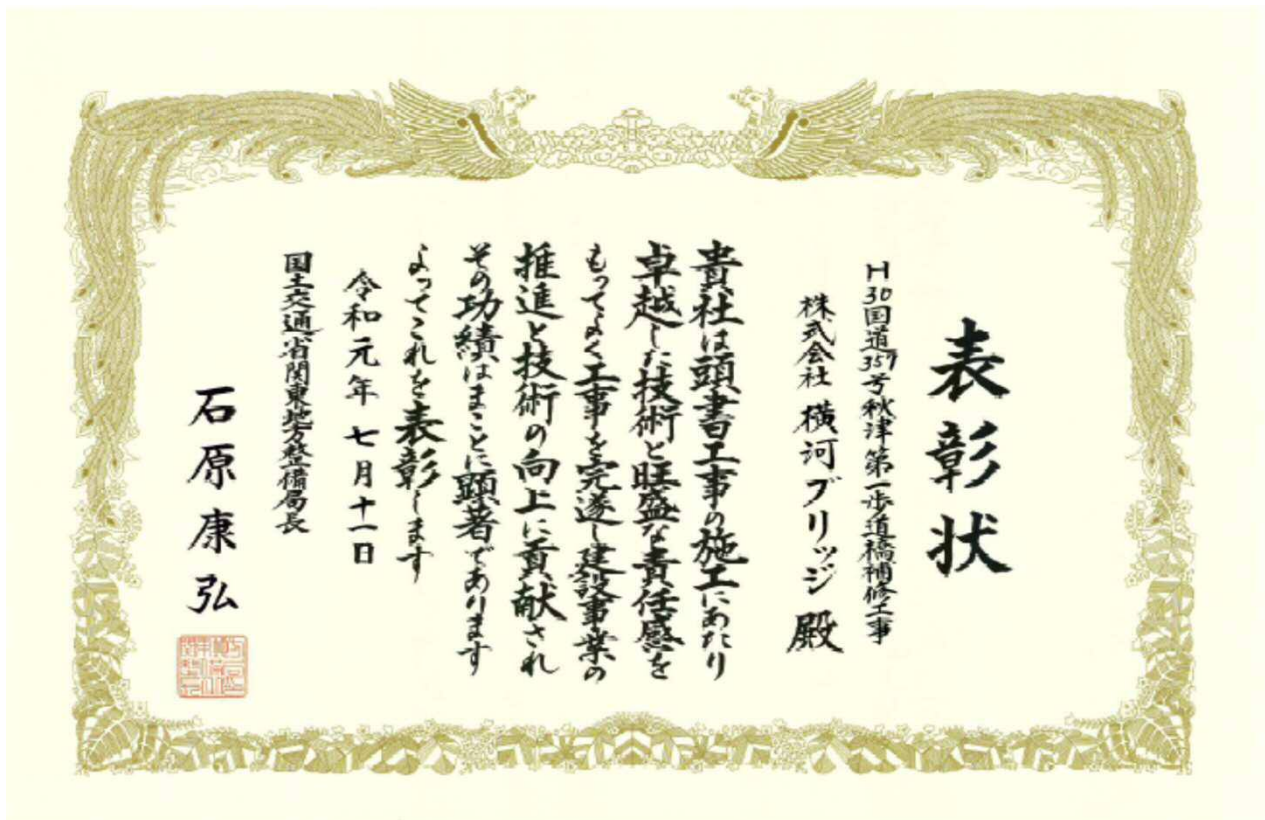 表彰状
H30国道357号秋津第一歩道橋補修工事
株式会社 横河ブリッジ 殿
貴社は頭書工事の施工にあたり
卓越した技術と旺盛な責任感を
もってよく工事を完遂し建設事業の
推進と技術の向上に貢献され
その功績はまことに顕著であります
よってこれを表彰します
令和元年七月十一日
国土交通省関東地方整備局長
石原康弘